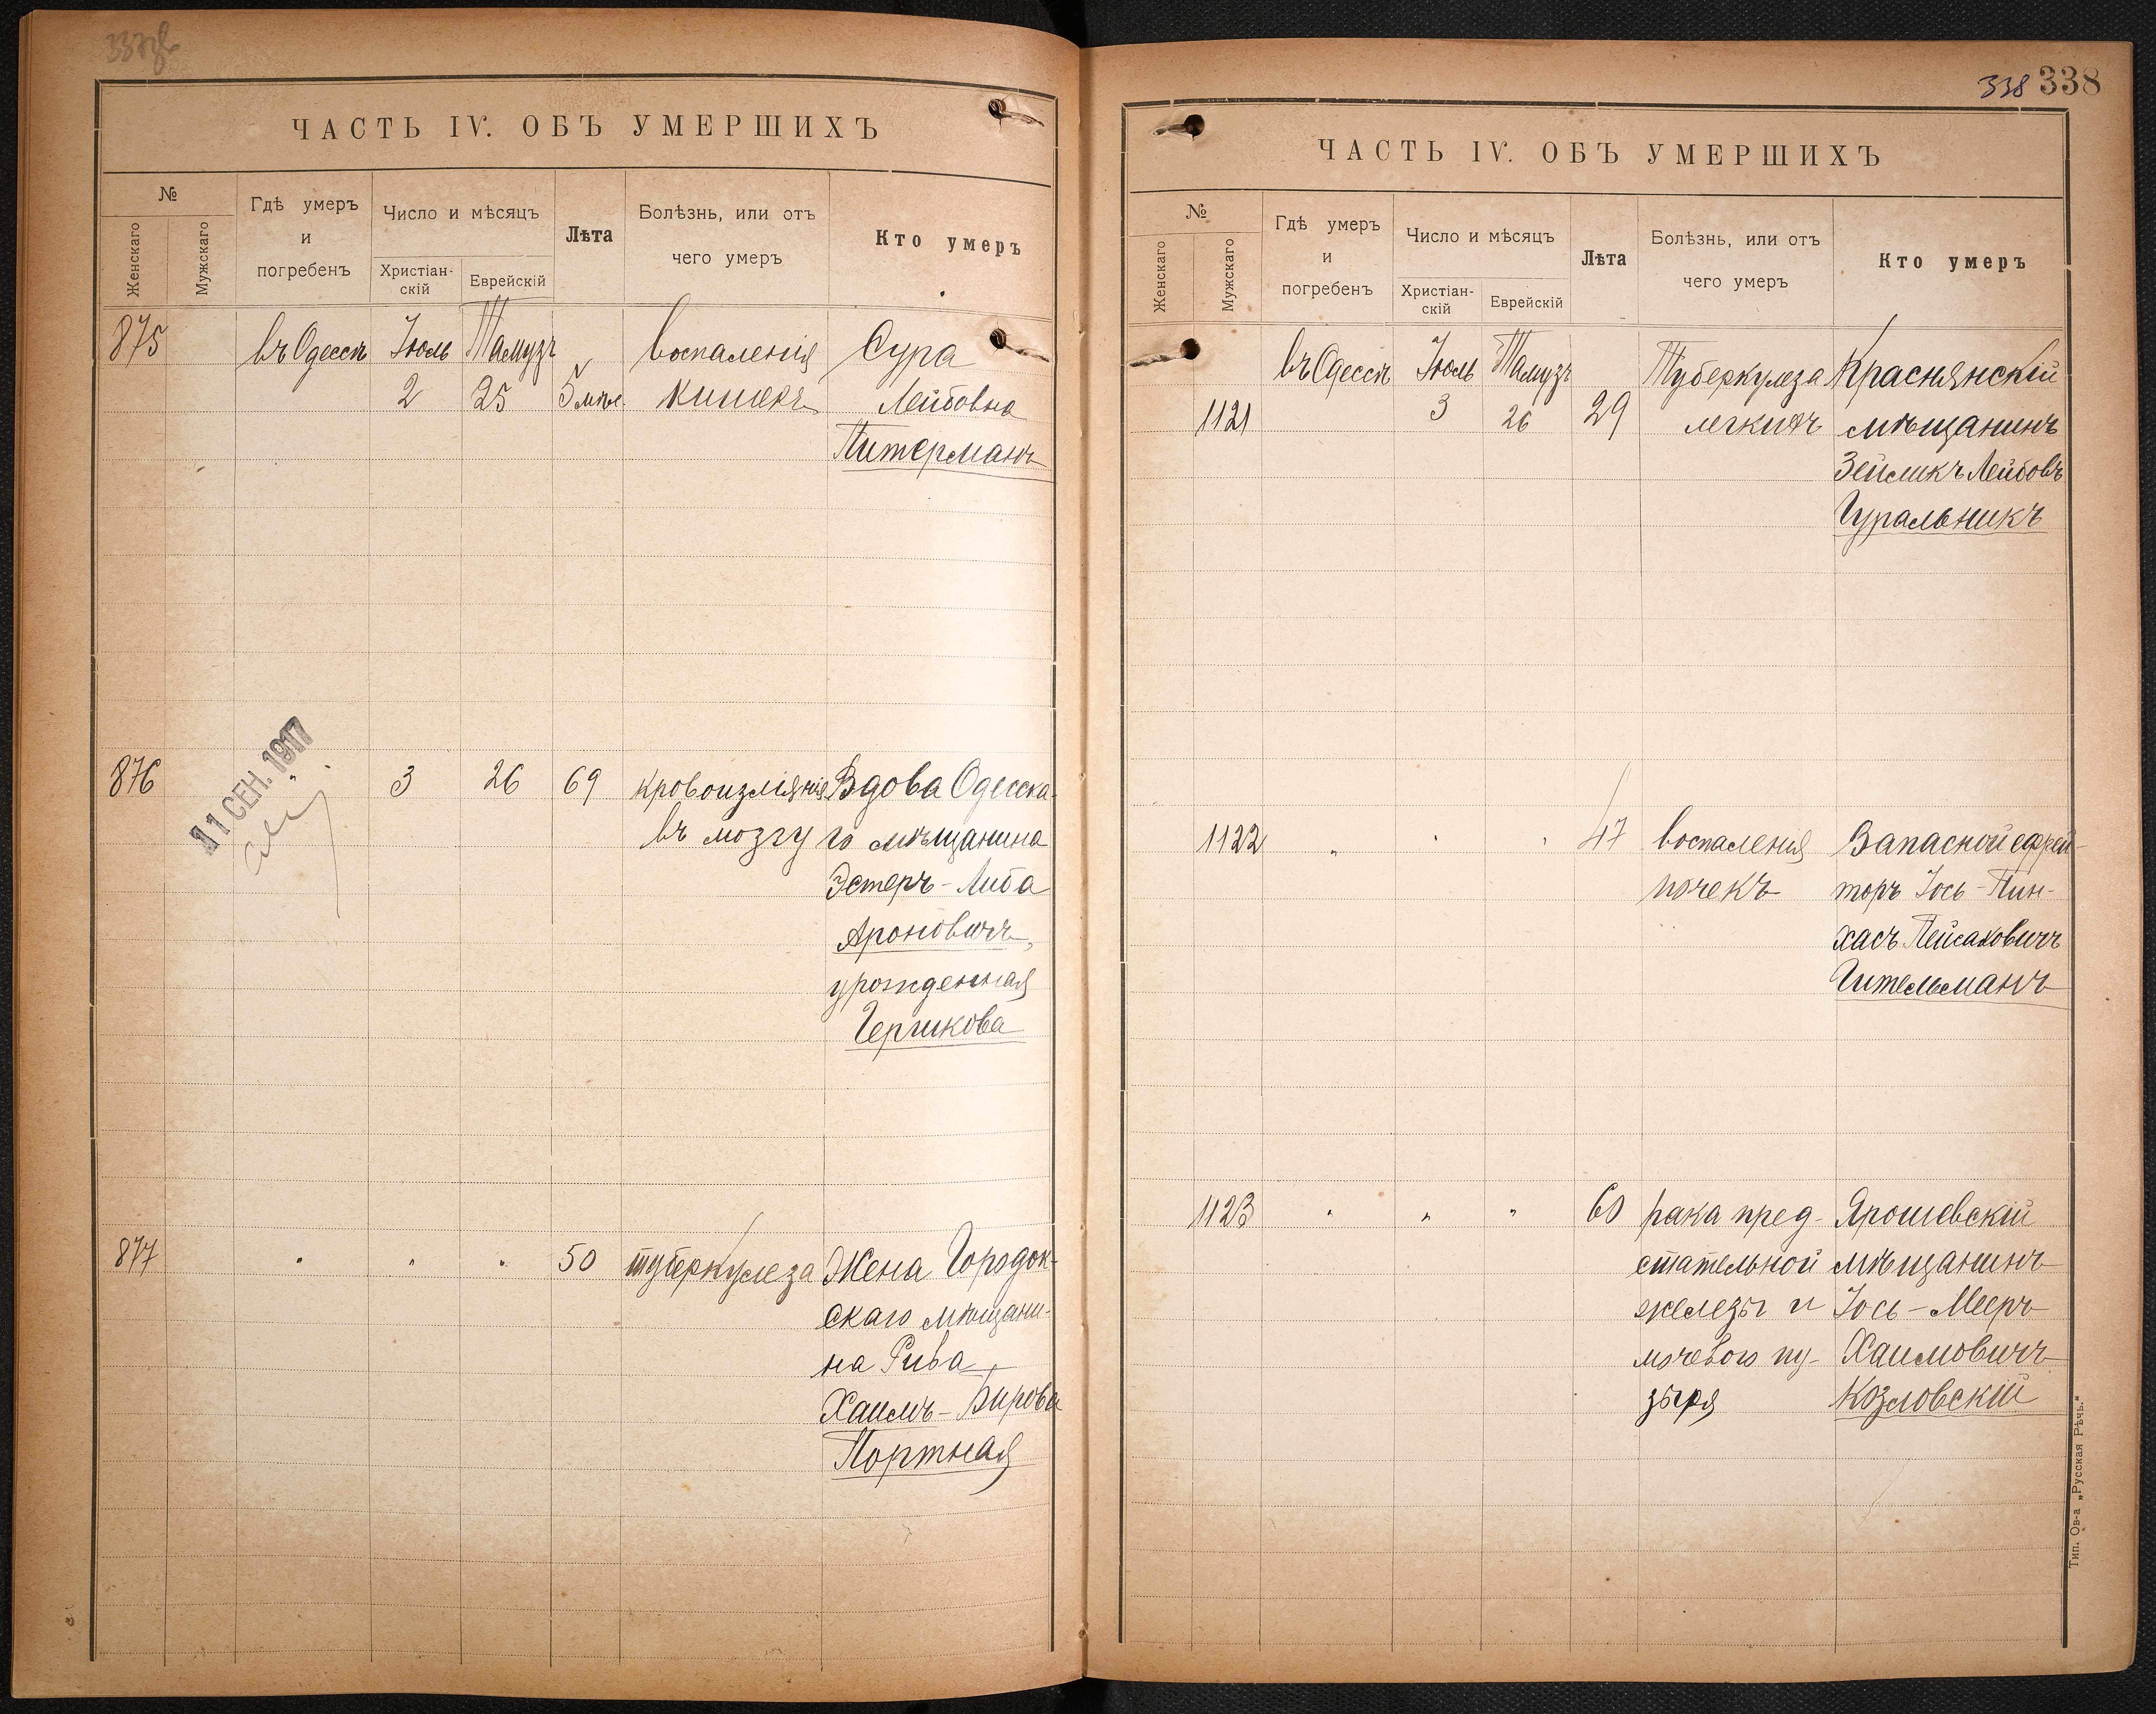 ЧАСТЬ IV. ОБЪ УМЕРШИХЪ
№
Женскаго
Мужскаго
Гдѣ умеръ
и
погребенъ
Число и мѣсяцъ
Христіан-
скій
Еврейскій
Лѣта
Болѣзнь, или отъ
чего умеръ
Кто умеръ
875 въ Одессѣ Іюль Тамузъ воспаленія Сура
2 25 5 мѣс. кишекъ Лейбовна
Питерманъ
11 СЕН. 1917
876 " 3 26 69 кровоизліянія Вдова Одесска-
въ мозгу го мѣщанина
Эстеръ-Либа
Ароновичъ,
урожденная
Гершкова
877 " " " 50 туберкулеза Жена Городок-
скаго мѣщани-
на Рива
Хаимъ-Бирова
Портная
338 338
ЧАСТЬ IV. ОБЪ УМЕРШИХЪ
№
Женскаго
Мужскаго
Гдѣ умеръ
и
погребенъ
Число и мѣсяцъ
Христіан-
скій
Еврейскій
Лѣта
Болѣзнь, или отъ
чего умеръ
Кто умеръ
въ Одессѣ Іюль Тамузъ Туберкулеза Краснянскій
1121 3 26 29 легкихъ мѣщанинъ
Зейликъ Лейбовъ
Гуральникъ
1122 " " " 47 воспаленія Запасной ефрей-
почекъ торъ Іось-Пин-
хасъ Пейсаховичъ
Гительманъ
1123 " " " 60 рака пред- Ярошевскій
стательной мѣщанинъ
железы и Іось-Мееръ
мочевого пу- Хаимовичъ
зыря Козловскій
Тип. Ов-а „Русская Рѣчь."